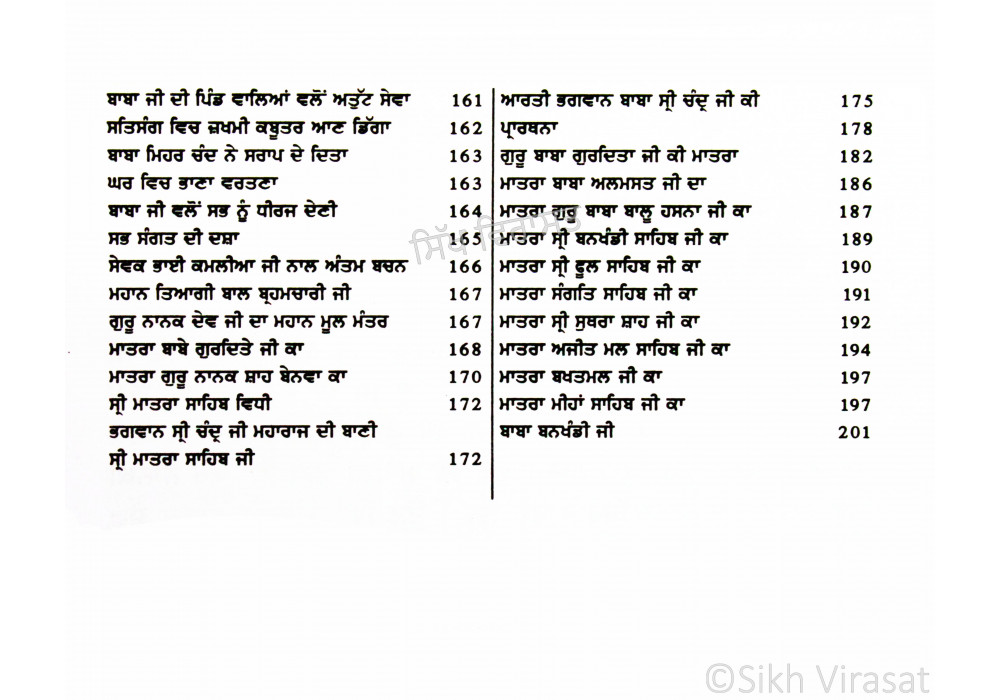 ਬਾਬਾ ਜੀ ਦੀ ਪਿੰਡ ਵਾਲਿਆਂ ਵਲੋਂ ਅਤੁੱਟ ਸੇਵਾ 161
ਸਤਿਸੰਗ ਵਿਚ ਜ਼ਖਮੀ ਕਬੂਤਰ ਆਣ ਡਿੱਗਾ 162
ਬਾਬਾ ਮਿਹਰ ਚੰਦ ਨੇ ਸਰਾਪ ਦੇ ਦਿਤਾ 163
ਘਰ ਵਿਚ ਭਾਣਾ ਵਰਤਣਾ 163
ਬਾਬਾ ਜੀ ਵਲੋਂ ਸਭ ਨੂੰ ਧੀਰਜ ਦੇਣੀ 164
ਸਭ ਸੰਗਤ ਦੀ ਦਸ਼ਾ 165
ਸੇਵਕ ਭਾਈ ਕਮਲੀਆ ਜੀ ਨਾਲ ਅੰਤਮ ਬਚਨ 166
ਮਹਾਨ ਤਿਆਗੀ ਬਾਲ ਬ੍ਰਹਮਚਾਰੀ ਜੀ 167
ਗੁਰੂ ਨਾਨਕ ਦੇਵ ਜੀ ਦਾ ਮਹਾਨ ਮੂਲ ਮੰਤਰ 167
ਮਾਤਰਾ ਬਾਬੇ ਗੁਰਦਿਤੇ ਜੀ ਕਾ 168
ਮਾਤਰਾ ਗੁਰੂ ਨਾਨਕ ਸ਼ਾਹ ਬੇਨਵਾ ਕਾ 170
ਸ੍ਰੀ ਮਾਤਰਾ ਸਾਹਿਬ ਵਿਧੀ 172
ਭਗਵਾਨ ਸ੍ਰੀ ਚੰਦ੍ਰ ਜੀ ਮਹਾਰਾਜ ਦੀ ਬਾਣੀ
ਸ੍ਰੀ ਮਾਤਰਾ ਸਾਹਿਬ ਜੀ 172
ਆਰਤੀ ਭਗਵਾਨ ਬਾਬਾ ਸ੍ਰੀ ਚੰਦ੍ਰ ਜੀ ਕੀ 175
ਪ੍ਰਾਰਥਨਾ 178
ਗੁਰੂ ਬਾਬਾ ਗੁਰਦਿਤਾ ਜੀ ਕੀ ਮਾਤਰਾ 182
ਮਾਤਰਾ ਬਾਬਾ ਅਲਮਸਤ ਜੀ ਦਾ 186
ਮਾਤਰਾ ਗੁਰੂ ਬਾਬਾ ਬਾਲੂ ਹਸਨਾ ਜੀ ਕਾ 187
ਮਾਤਰਾ ਸ੍ਰੀ ਬਨਖੰਡੀ ਸਾਹਿਬ ਜੀ ਕਾ 189
ਮਾਤਰਾ ਸ੍ਰੀ ਫੂਲ ਸਾਹਿਬ ਜੀ ਕਾ 190
ਮਾਤਰਾ ਸੰਗਤਿ ਸਾਹਿਬ ਜੀ ਕਾ 191
ਮਾਤਰਾ ਸ੍ਰੀ ਸੁਥਰਾ ਸ਼ਾਹ ਜੀ ਕਾ 192
ਮਾਤਰਾ ਅਜੀਤ ਮਲ ਸਾਹਿਬ ਜੀ ਕਾ 194
ਮਾਤਰਾ ਬਖਤਮਲ ਜੀ ਕਾ 197
ਮਾਤਰਾ ਮੀਹਾਂ ਸਾਹਿਬ ਜੀ ਕਾ 197
ਬਾਬਾ ਬਨਖੰਡੀ ਜੀ 201
ਸਿੱਖ ਵਿਰਾਸਤ
©Sikh Virasat